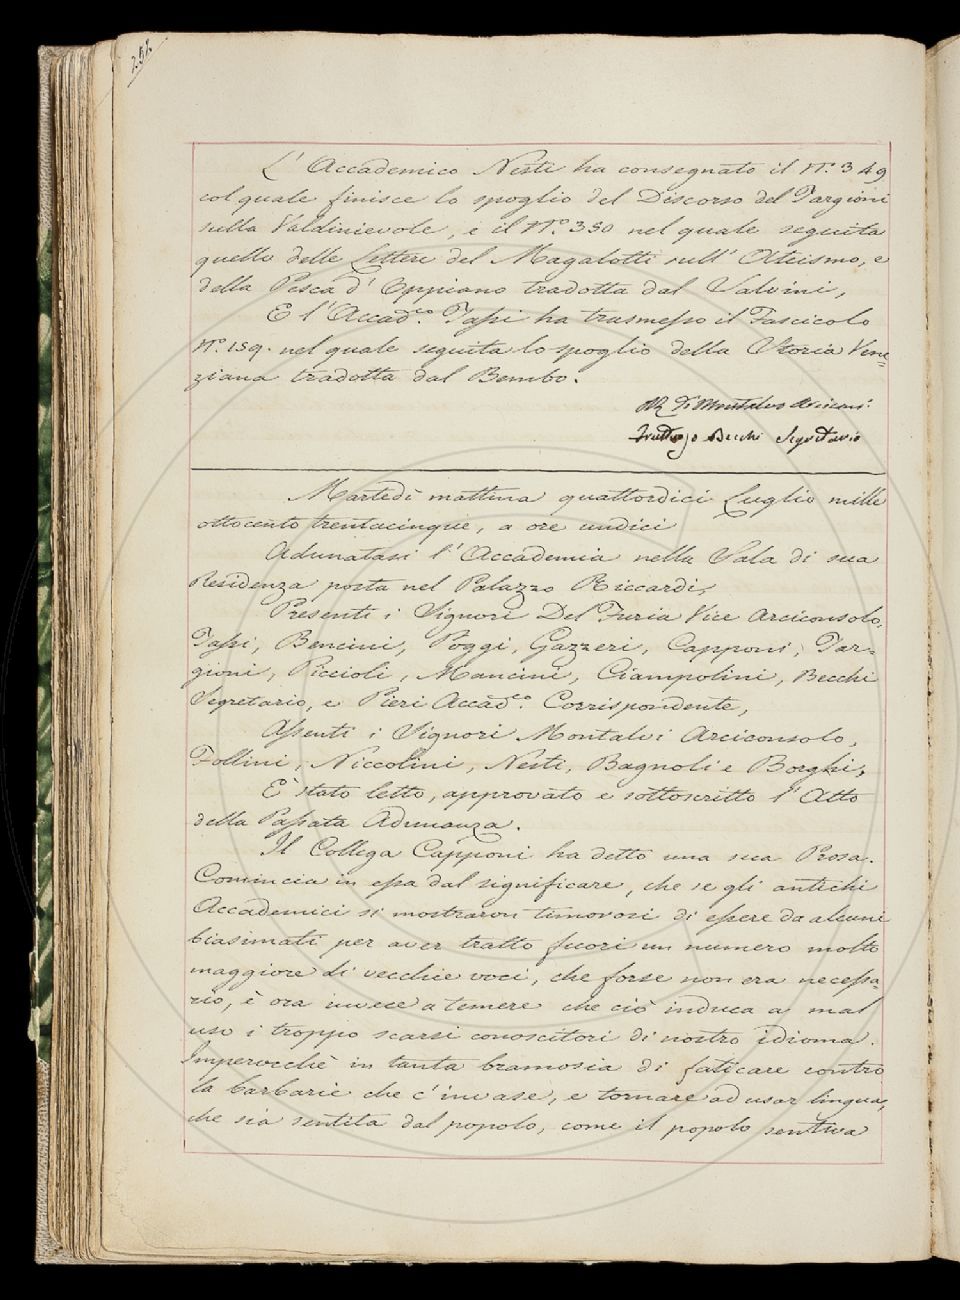 L' Accademico Nesti ha consegnato il N.° 349
col quale finisce lo spoglio del Discorso del Targioni
sulla Valdinievole, e il N.° 350 nel quale seguita
quello delle Lettere del Magalotti sull' Ateismo, e
della Pesca d' Oppiano tradotta dal Salvini,
E l' Accad.co Tassi ha trasmesso il Fascicolo
N.° 159. nel quale seguita lo spoglio della Storia Vene=
ziana tradotta dal Bembo.
Di Montalvo Arcicons.
Fruttuoso Becchi Segretario
Martedì mattina quattordici Luglio mille
ottocento trentacinque, a ore undici
Adunatasi l' Accademia nella Sala di sua
Residenza posta nel Palazzo Riccardi,
Presenti i Signori Del Furia Vice Arciconsolo,
Tassi, Bencini, Poggi, Gazzeri, Capponi, Tar=
gioni, Piccioli, Mancini, Ciampolini, Becchi
Segretario, e Pieri Accad.co Corrispondente,
Assenti i Signori Montalvi Arciconsolo,
Follini, Niccolini, Nesti, Bagnoli e Borghi,
È stato letto, approvato e sottoscritto l' Atto
della Passata Adunanza.
Il Collega Capponi ha detto una sua Prosa.
Comincia in essa dal significare, che se gli antichi
Accademici si mostraron timorosi di essere da alcuni
biasimati per aver tratto fuori un numero molto
maggiore di vecchie voci, che forse non era necessa=
rio, è ora invece a temere che ciò induca a mal
uso i troppo scarsi conoscitori di nostro idioma.
Imperocchè in tanta bramosia di faticare contro
la barbarie che c' invase, e tornare ad usar lingua,
che sia sentita dal popolo, come il popolo sentiva